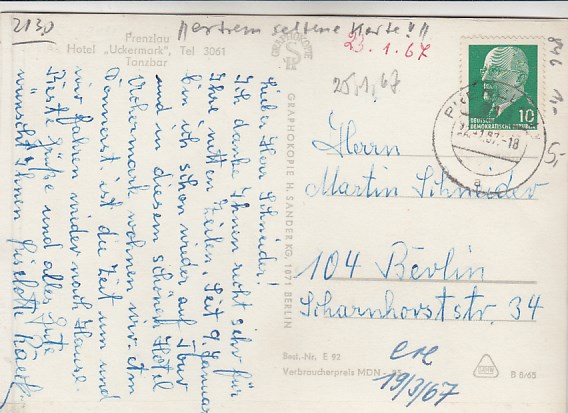 2130
extrem seltene Karte!!
Prenzlau
Hotel „Uckermark", Tel 3061
Tanzbar
23.1.67
25.1.67
846
1,-
5,-
10
DEUTSCHE
DEMOKRATISCHE REPUBLIK
-18
a
GRAPHOKOPIE
GRAPHOKOPIE H. SANDER KG, 1071 BERLIN
Lieber Herr Schneider!
Ich danke Ihnen sehr für
Ihre netten Zeilen. Seit 9. Januar
bin ich schon wieder auf Tour
und in diesem schönen Hotel
Uckermark wohnen wir. Am
Donnerst. ist die Zeit um und
wir fahren wieder nach Hause.
Beste Grüße und alles Gute
wünscht Ihnen
Herrn
Martin Schneider
104 Berlin
Scharnhorststr. 34
Best.-Nr. E 92
Verbraucherpreis MDN
B 8/65
19/3/67